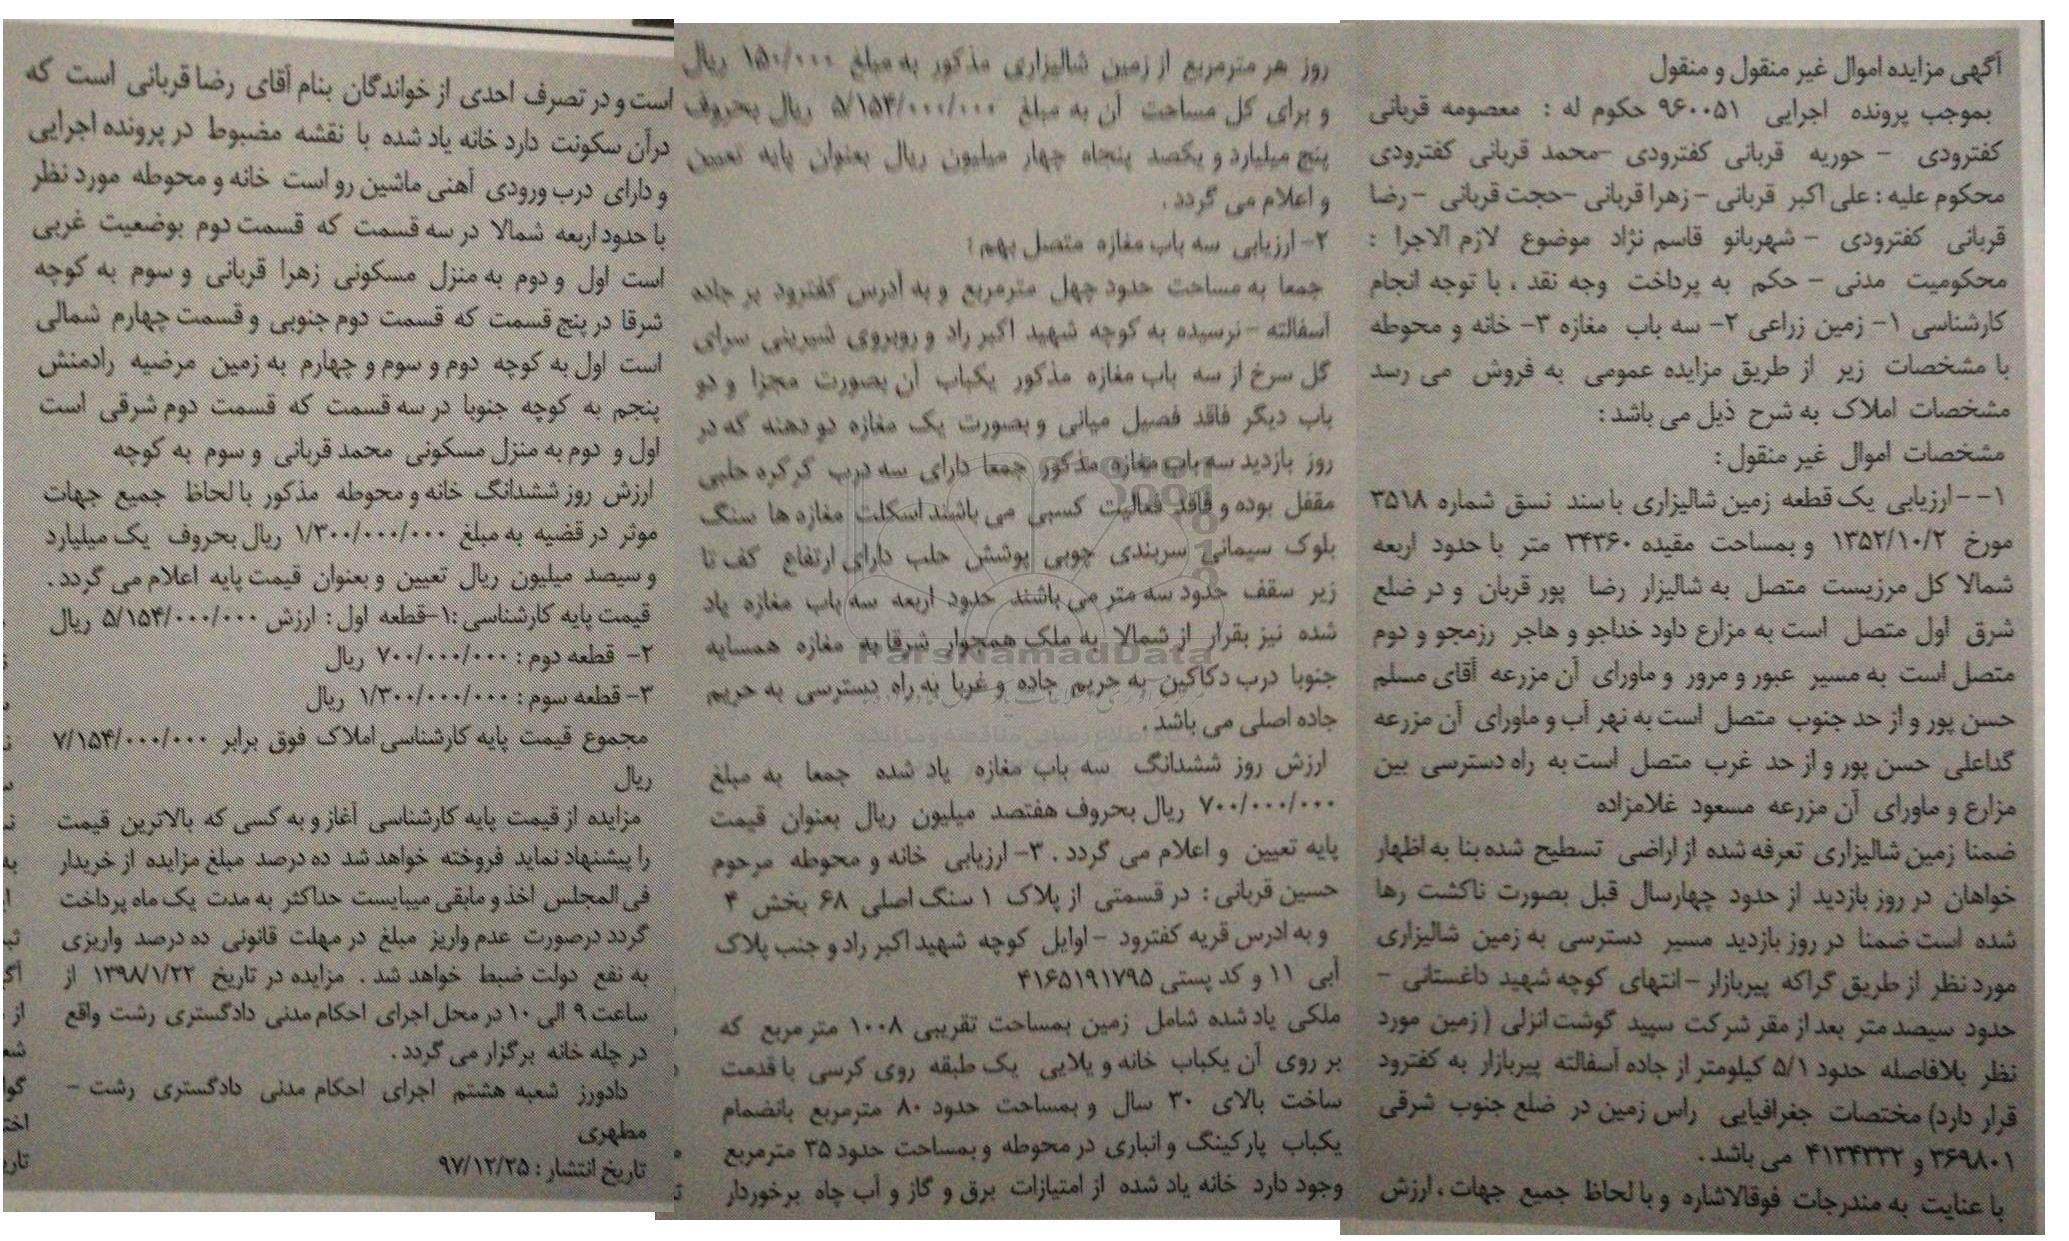 آگهی مزایده اموال غیر منقول و منقول
بموجب پرونده اجرایی ۹۶۰۰۵۱ حکوم له : معصومه قربانی
کفترودی - حوریه قربانی کفترودی -محمد قربانی کفترودی
محکوم علیه : علی اکبر قربانی - زهرا قربانی -حجت قربانی - رضا
قربانی کفترودی - شهربانو قاسم نژاد موضوع لازم الاجرا :
محکومیت مدنی - حکم به پرداخت وجه نقد ، با توجه انجام
کارشناسی ۱- زمین زراعی ۲- سه باب مغازه ۳- خانه و محوطه
با مشخصات زیر از طریق مزایده عمومی به فروش می رسد
مشخصات املاک به شرح ذیل می باشد :
مشخصات اموال غیر منقول :
۱--ارزیابی یک قطعه زمین شالیزاری با سند نسق شماره ۳۵۱۸
مورخ ۱۳۵۲/۱۰/۲ و بمساحت مقیده ۳۴۳۶۰ متر با حدود اربعه
شمالا کل مرزیست متصل به شالیزار رضا پور قربان و در ضلع
شرق اول متصل است به مزارع داود خداجو و هاجر رزمجو و دوم
متصل است به مسیر عبور و مرور و ماورای آن مزرعه آقای مسلم
حسن پور و از حد جنوب متصل است به نهر آب و ماورای آن مزرعه
گداعلی حسن پور و از حد غرب متصل است به راه دسترسی بین
مزارع و ماورای آن مزرعه مسعود غلامزاده
ضمنا زمین شالیزاری تعرفه شده از اراضی تسطیح شده بنا به اظهار
خواهان در روز بازدید از حدود چهارسال قبل بصورت ناکشت رها
شده است ضمنا در روز بازدید مسیر دسترسی به زمین شالیزاری
مورد نظر از طریق گراکه پیربازار -انتهای کوچه شهید داغستانی -
حدود سیصد متر بعد از مقر شرکت سپید گوشت انزلی (زمین مورد
نظر بلافاصله حدود ۵/۱ کیلومتر از جاده آسفالته پیربازار به کفترود
قرار دارد) مختصات جغرافیایی راس زمین در ضلع جنوب شرقی
۳۶۹۸۰۱ و ۴۱۳۴۳۳۲ می باشد .
با عنایت به مندرجات فوقالاشاره و با لحاظ جمیع جهات ، ارزش
روز هر مترمربع از زمین شالیزاری مذکور به مبلغ ۱۵۰/۰۰۰ ریال
و برای کل مساحت آن به مبلغ ۵/۱۵۴/۰۰۰/۰۰۰ ریال بحروف
پنج میلیارد و یکصد پنجاه چهار میلیون ریال بعنوان پایه تعیین
و اعلام می گردد .
۲- ارزیابی سه باب مغازه متصل بهم :
جمعا به مساحت حدود چهل مترمربع و به آدرس کفترود بر جاده
آسفالته - نرسیده به کوچه شهید اکبر راد و روبروی شیرینی سرای
گل سرخ از سه باب مغازه مذکور یکباب آن بصورت مجزا و دو
باب دیگر فاقد فصیل میانی و بصورت یک مغازه دو دهنه که در
روز بازدید سه باب مغازه مذکور جمعا دارای سه درب کرکره حلبی
مقفل بوده و فاقد فعالیت کسبی می باشند اسکلت مغازه ها سنگ
بلوک سیمانی سربندی چوبی پوشش حلب دارای ارتفاع کف تا
زیر سقف حدود سه متر می باشند حدود اربعه سه باب مغازه یاد
شده نیز بقرار از شمالا به ملک همجوار شرقا به مغازه همسایه
جنوبا درب دکاکین به حریم جاده و غربا به راه دسترسی به حریم
جاده اصلی می باشد .
ارزش روز ششدانگ سه باب مغازه یاد شده جمعا به مبلغ
۷۰۰/۰۰۰/۰۰۰ ریال بحروف هفتصد میلیون ریال بعنوان قیمت
پایه تعیین و اعلام می گردد . ۳- ارزیابی خانه و محوطه مرحوم
حسین قربانی : در قسمتی از پلاک ۱ سنگ اصلی ۶۸ بخش ۴
و به ادرس قریه کفترود - اوایل کوچه شهید اکبر راد و جنب پلاک
آبی ۱۱ و کد پستی ۴۱۶۵۱۹۱۷۹۵
ملکی یاد شده شامل زمین بمساحت تقریبی ۱۰۰۸ متر مربع که
بر روی آن یکباب خانه ویلایی یک طبقه روی کرسی با قدمت
ساخت بالای ۳۰ سال و بمساحت حدود ۸۰ مترمربع بانضمام
یکباب پارکینگ و انباری در محوطه و بمساحت حدود ۳۵ مترمربع
وجود دارد خانه یاد شده از امتیازات برق و گاز و آب چاه برخوردار
است و در تصرف احدی از خواندگان بنام آقای رضا قربانی است که
درآن سکونت دارد خانه یاد شده با نقشه مضبوط در پرونده اجرایی
و دارای درب ورودی آهنی ماشین رو است خانه و محوطه مورد نظر
با حدود اربعه شمالا در سه قسمت که قسمت دوم بوضعیت غربی
است اول و دوم به منزل مسکونی زهرا قربانی و سوم به کوچه
شرقا در پنج قسمت که قسمت دوم جنوبی و قسمت چهارم شمالی
است اول به کوچه دوم و سوم و چهارم به زمین مرضیه رادمنش
پنجم به کوچه جنوبا در سه قسمت که قسمت دوم شرقی است
اول و دوم به منزل مسکونی محمد قربانی و سوم به کوچه
ارزش روز ششدانگ خانه و محوطه مذکور با لحاظ جمیع جهات
موثر در قضیه به مبلغ ۱/۳۰۰/۰۰۰/۰۰۰ ریال بحروف یک میلیارد
و سیصد میلیون ریال تعیین و بعنوان قیمت پایه اعلام می گردد .
قیمت پایه کارشناسی :۱-قطعه اول : ارزش ۵/۱۵۴/۰۰۰/۰۰۰ ریال
۲- قطعه دوم : ۷۰۰/۰۰۰/۰۰۰ ریال
۳- قطعه سوم : ۱/۳۰۰/۰۰۰/۰۰۰ ریال
مجموع قیمت پایه کارشناسی املاک فوق برابر ۷/۱۵۴/۰۰۰/۰۰۰
ریال
مزایده از قیمت پایه کارشناسی آغاز و به کسی که بالاترین قیمت
را پیشنهاد نماید فروخته خواهد شد ده درصد مبلغ مزایده از خریدار
فی المجلس اخذ و مابقی میبایست حداکثر به مدت یک ماه پرداخت
گردد درصورت عدم واریز مبلغ در مهلت قانونی ده درصد واریزی
به نفع دولت ضبط خواهد شد . مزایده در تاریخ ۱۳۹۸/۱/۲۲ از
ساعت ۹ الی ۱۰ در محل اجرای احکام مدنی دادگستری رشت واقع
در چله خانه برگزار می گردد .
دادورز شعبه هشتم اجرای احکام مدنی دادگستری رشت -
مطهری
تاریخ انتشار : ۹۷/۱۲/۲۵
ParsNamadData